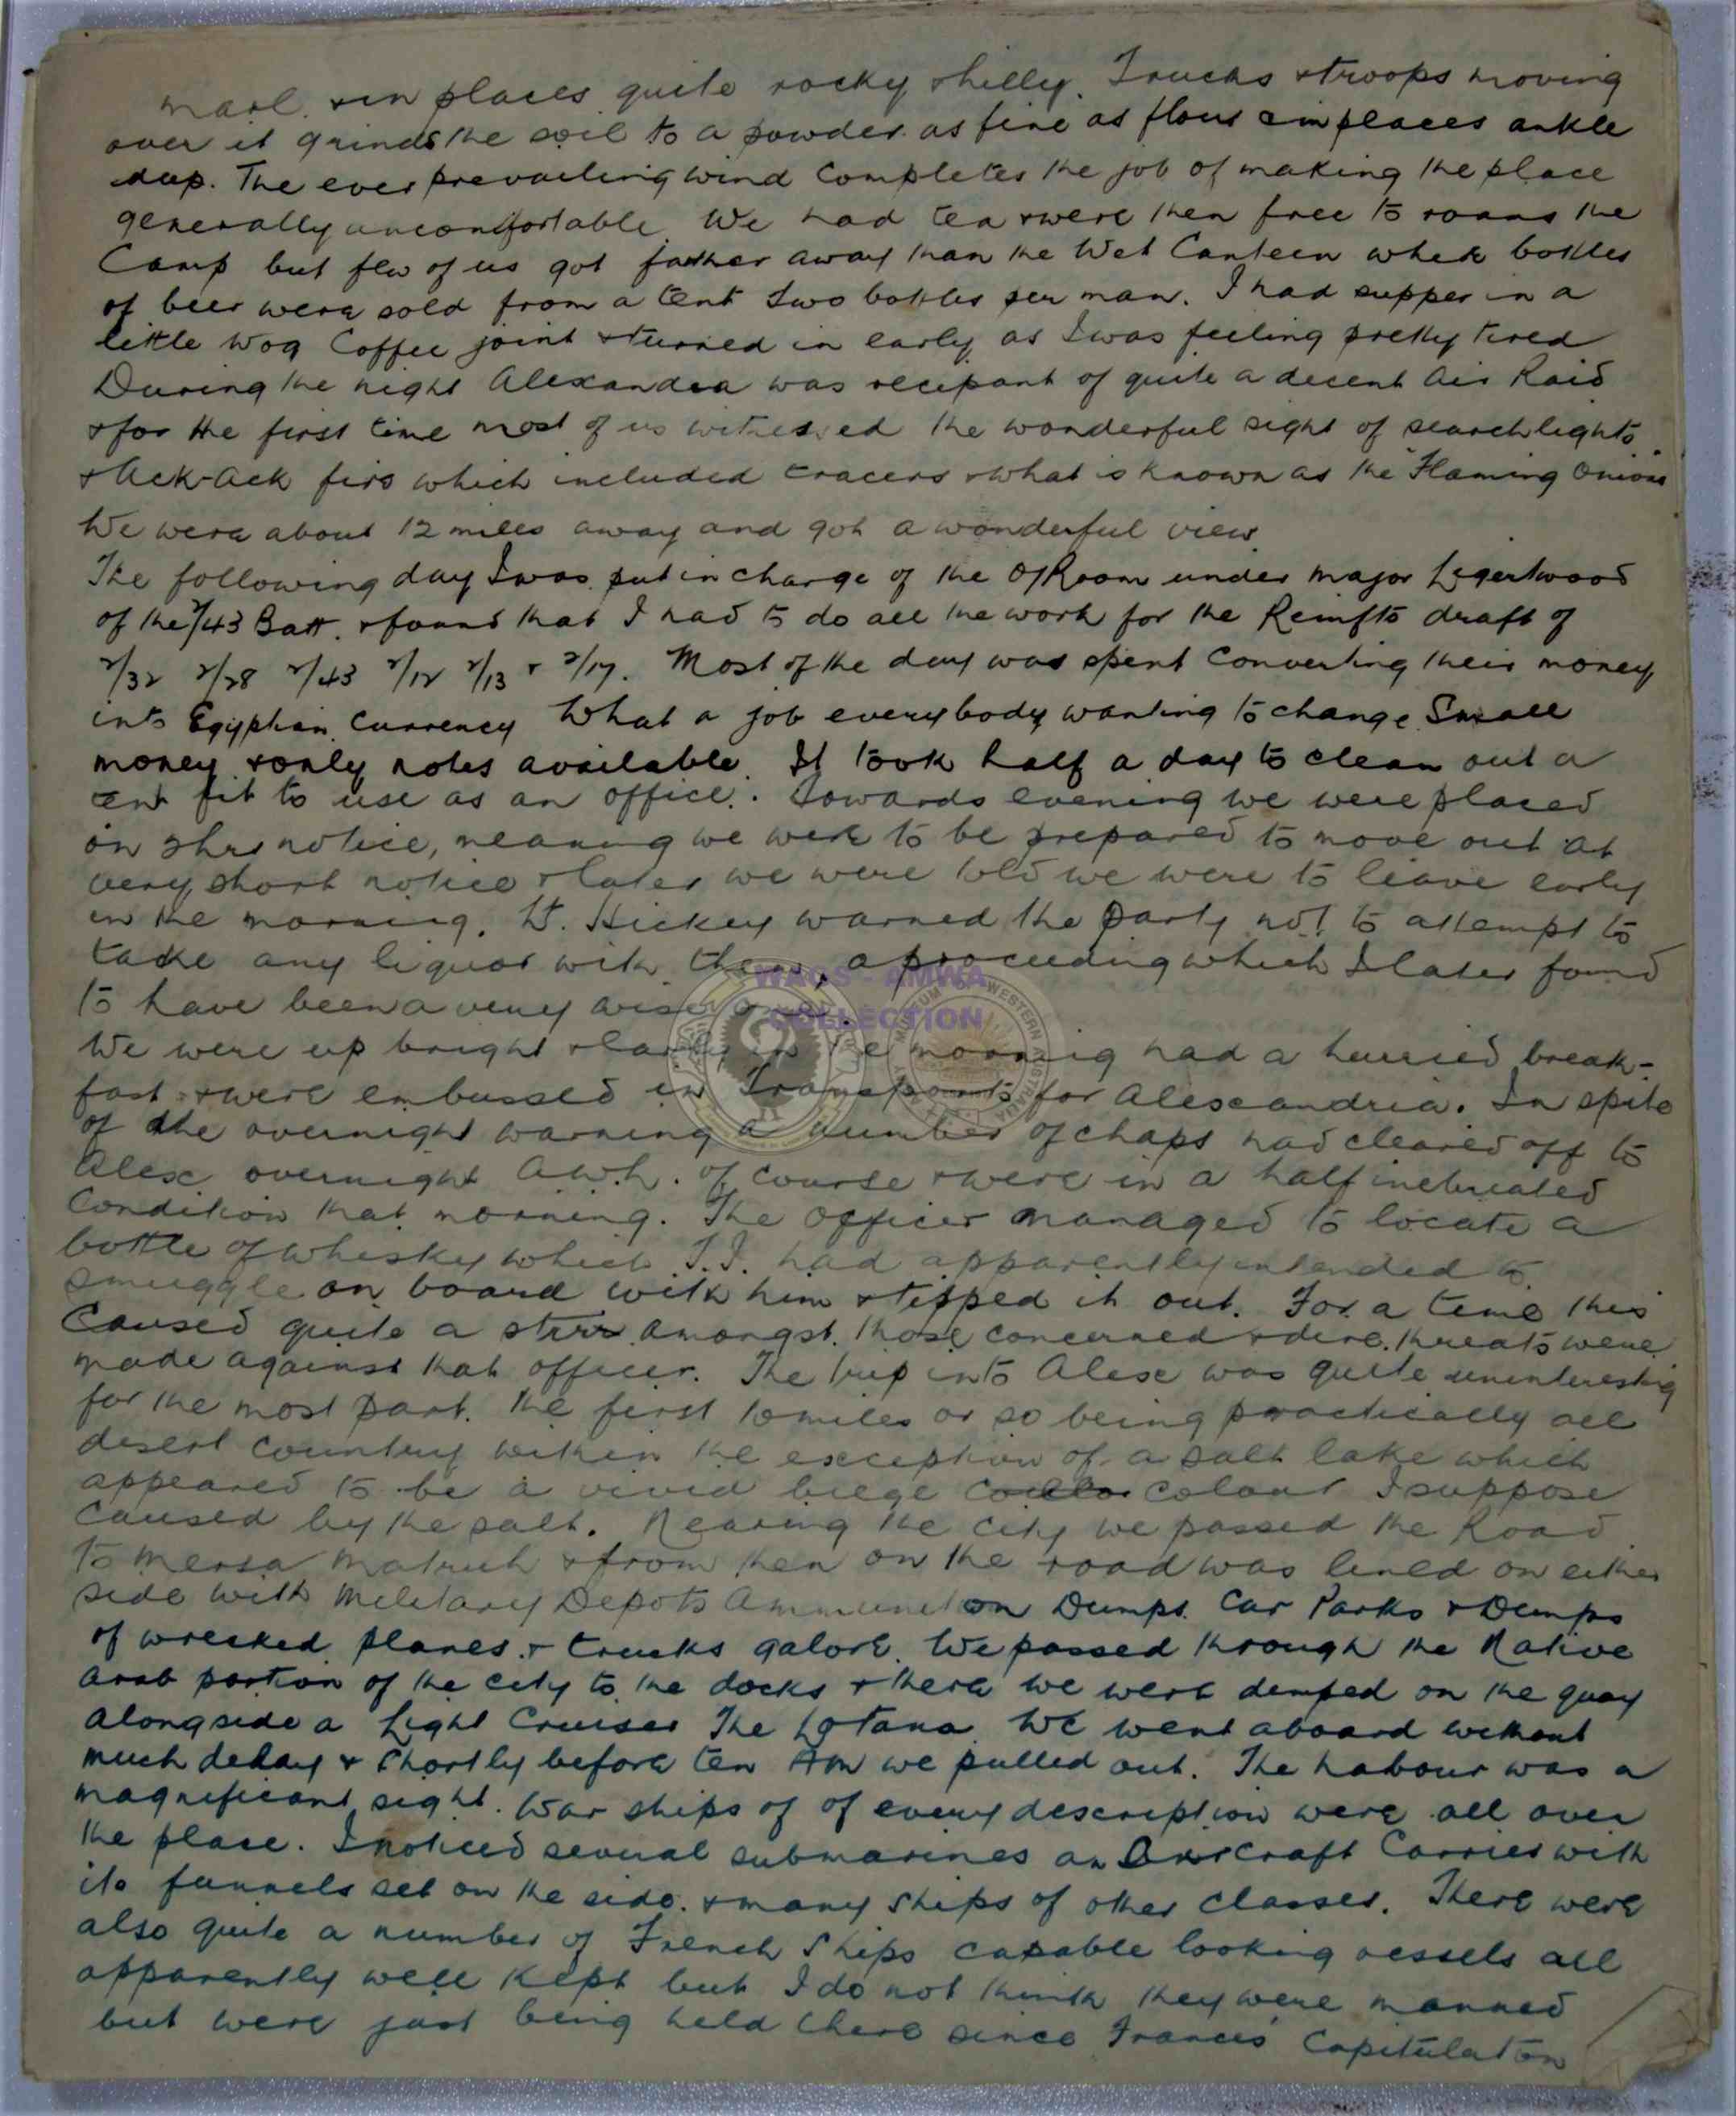 marl. & in places quite rocky & hilly. Trucks & troops moving
over it grinds the soil to a powder as fine as flour & in places ankle
deep. The ever prevailing wind completes the job of making the place
generally uncomfortable. We had tea & were then free to roam the
Camp but few of us got farther away than the Wet Canteen where bottles
of beer were sold from a tent two bottles per man. I had supper in a
little Wog Coffee joint & turned in early as I was feeling pretty tired
During the night Alexandria was recipant of quite a decent Air Raid
& for the first time most of us witnessed the wonderful sight of searchlights
& Ack-Ack fire which included tracers & what is known as the "Flaming Onions"
We were about 12 miles away and got a wonderful view
The following day I was put in charge of the O/Room under Major Ligertwood
of the 2/43 Batt. & found that I had to do all the work for the Reinfts draft of
2/32 2/28 2/43 2/12 2/13 & 2/17. Most of the day was spent converting their money
into Egyptian Currency What a job everybody wanting to change Small
money & only notes available. It took half a day to clean out a
tent fit to use as an office. Towards evening we were placed
on notice, meaning we were to be prepared to move out at
very short notice & later we were told we were to leave early
in the morning. Lt. Hickey warned the party not to attempt to
take any liquor with them, a proceeding which I later found
to have been a very wise
We were up bright & early in the morning had a hurried break-
fast & were embussed in Transports for Alexandria. In spite
of the overnight warning a number of chaps had cleared off to
Alex overnight A.W.L. of course & were in a half inebriated
condition that morning. The officer managed to locate a
bottle of whisky which had apparently intended to
smuggle on board with him & tipped it out. For a time this
caused quite a stir amongst those concerned & dire threats were
made against that officer. The trip into Alex was quite uninteresting
for the most part. the first 10 miles or so being practically all
desert country within the exception of a salt lake which
appeared to be a vivid beige colour I suppose
caused by the salt. Nearing the city we passed the Road
to Mersa Matruh & from then on the road was lined on either
side with Military Depots Ammunition Dumps. Car Parks & Dumps
of wrecked planes & trucks galore. We passed through the Native
Arab portion of the city to the docks & there we were dumped on the quay
alongside a Light Cruiser The Latona. We went aboard without
much delay & shortly before ten AM we pulled out. The habour was a
magnificant sight. War ships of of every description were all over
the place. I noticed several submarines an Aircraft Carrier with
its funnels set on the side. & many ships of other classes. There were
also quite a number of French Ships capable looking vessels all
apparently well kept but I do not think they were manned
but were just being held there since Frances Capitulation
WAGS - AMWA
COLLECTION
MUSEUM WESTERN AUSTRALIA